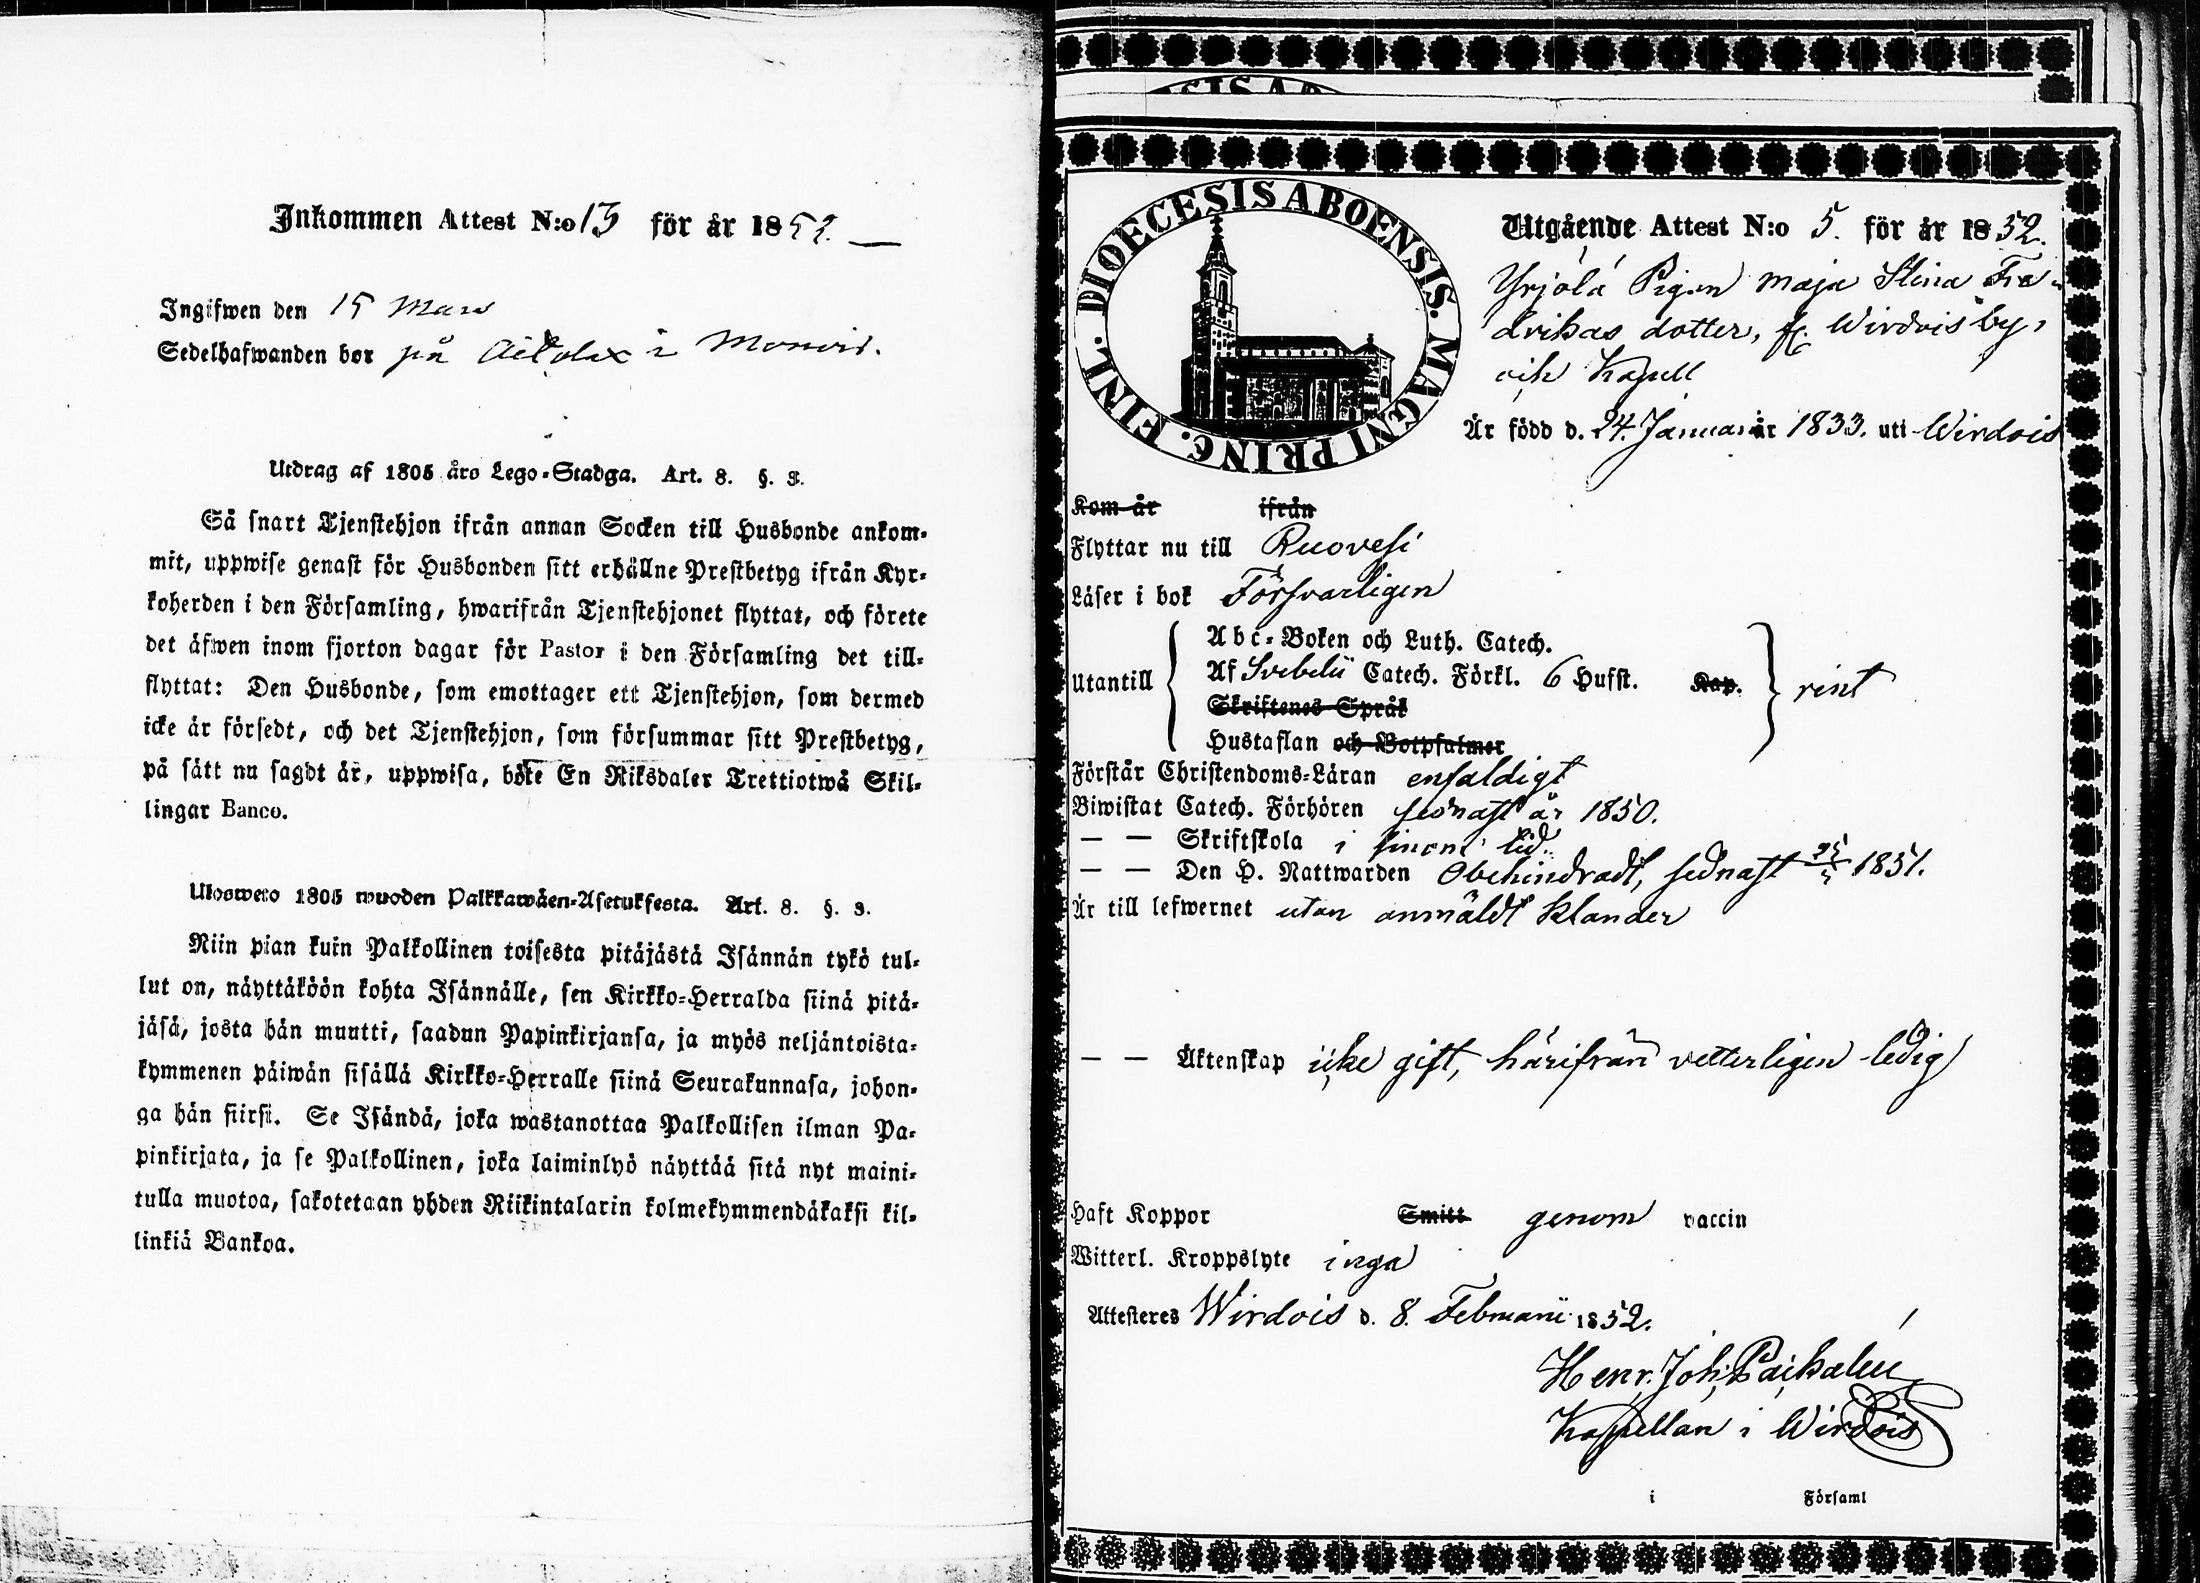 Inkommen Attest N:o 13 för år 1852.
Ingifwen den 15 Mars
Sedelhafwanden bor på i
Utdrag af 1805 års Lego-Stadga. Art. 8. §. 3.
Så snart Tjenstehjon ifrån annan Socken till Husbonde ankom-
mit, uppwise genast för Husbonden sitt erhållne Prestbetyg ifrån Kyr-
koherden i den Församling, hwarifrån Tjenstehjonet flyttat, och förete
det äfwen inom fjorton dagar för Pastor i den Församling det till-
flyttat: Den Husbonde, som emottager ett Tjenstehjon, som dermed
icke är försedt, och det Tjenstehjon, som försummar sitt Prestbetyg,
på sätt nu sagdt är, uppwisa, böte En Riksdaler Trettiotwå Skil-
lingar Banco.
Ulosweto 1805 wuoden Palkkawäen-Asetuksesta. Art. 8. §. 3.
Niin pian kuin Palkollinen toisesta pitäjästä Isännän tykö tul-
lut on, näyttäköön kohta Isännälle, sen Kirkko-Herralda siinä pitä-
jäsä, josta hän muutti, saadun Papinkirjansa, ja myös neljäntoista-
kymmenen päiwän sisällä Kirkko-Herralle siinä Seurakunnasa, johon-
ga hän siirsi. Se Isändä, joka wastanottaa Palkollisen ilman Pa-
pinkirjata, ja se Palkollinen, joka laiminlyö näyttää sitä nyt maini-
tulla muotoa, sakotetaan yhden Riikintalarin kolmekymmendäkaksi kil-
linkiä Bankoa.
DIOECESIS ABOENSIS. MAGNI PRINC. FINL.
Utgående Attest N:o 5. för år 1852.
Yrjölä Pigan Maja Stina Fre-
driksdotter, fr. Wirdois by,
och Kapell
Är född d. 24. Januari år 1833. uti Wirdois
Kom år ifrån
Flyttar nu till Ruovesi
Läser i bok Försvarligen
Utantill
Abc-Boken och Luth. Catech.
Af Svebelii Catech. Förkl. 6 Hufst. Kap.
Skriftenes Språk
Hustaflan och Botpsalmer
rent
Förstår Christendoms-Läran enfaldigt
Biwistat Catech. Förhören sednast år 1850.
— — Skriftskola i sinom tid.
— — Den H. Nattwarden Obehindradt, sednast 1851.
Är till lefwernet utan anmäldt klander
— — Äktenskap icke gift, härifrån vetterligen ledig
Haft Koppor Smitt genom vaccin
Witterl. Kroppslyte inga
Attesteres Wirdois d. 8. Februarii 1852.
Henr. Joh.
Kapellan i Wirdois
i Församl